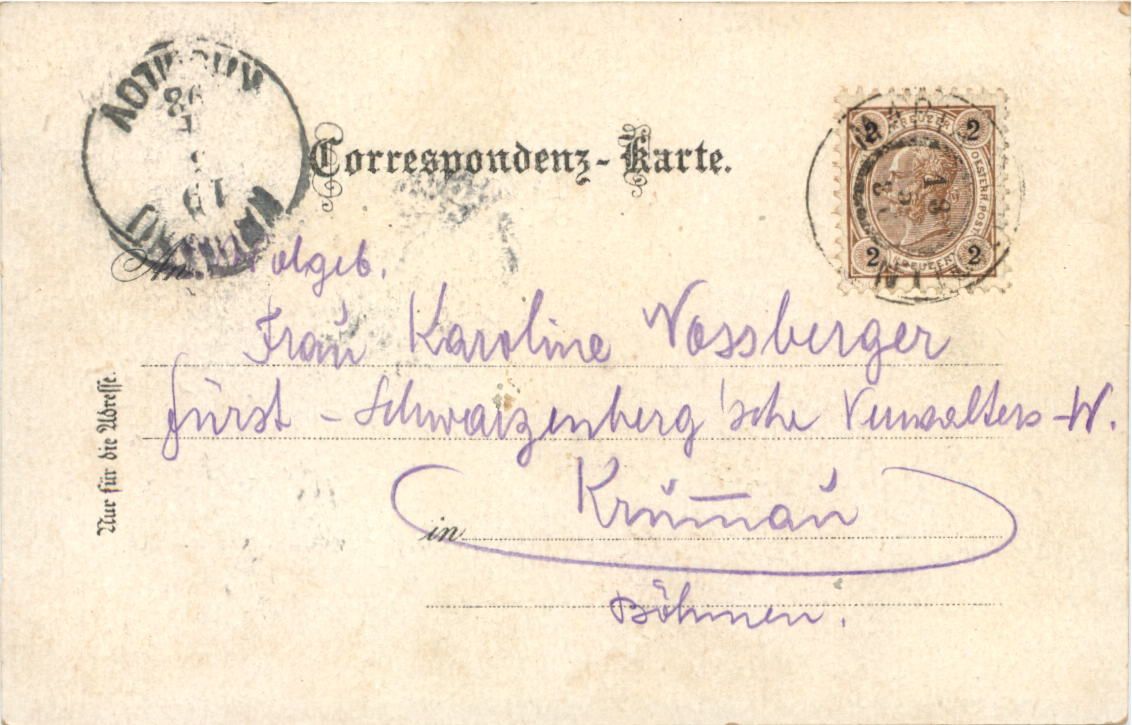 Correspondenz-Karte.
2 KREUZER 2
OESTERR. POST
2 KREUZER 2
18
5
19
An Wolgeb.
Frau Karoline Vossberger
fürst-Schwarzenberg'sche Verwalters-W.
in Krumau
Böhmen.
Nur für die Adresse.